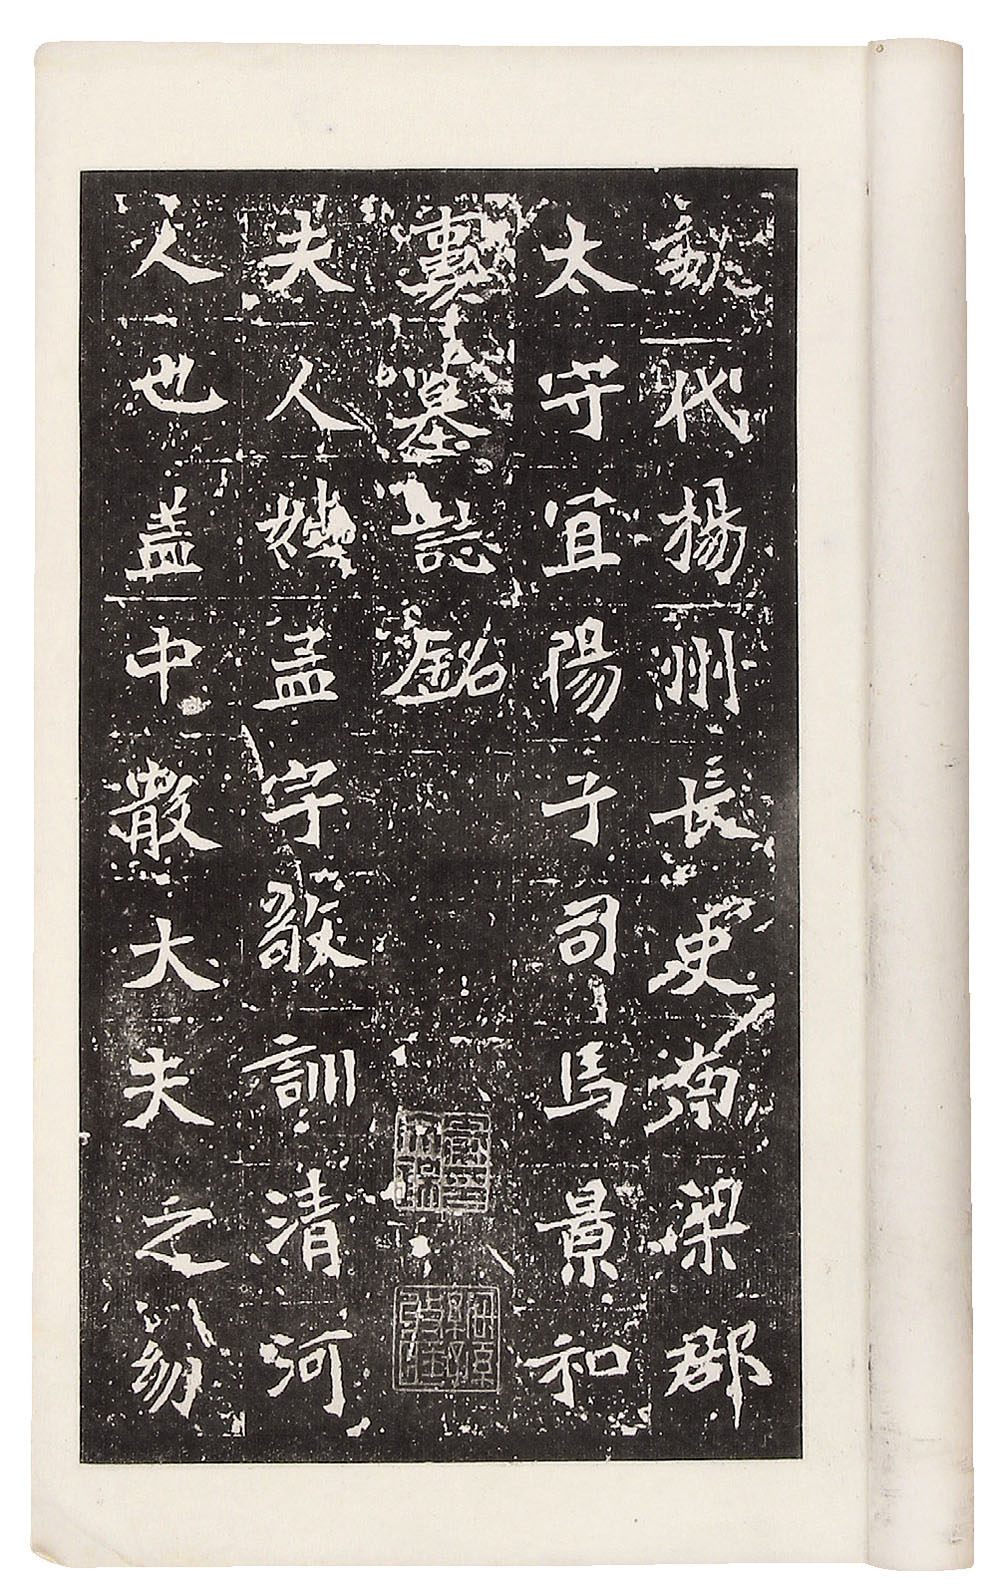 魏代揚州長史南梁郡
太守宜陽子司馬景和
妻墓誌銘
夫人姓孟字敬訓清河
人也蓋中散大夫之幼